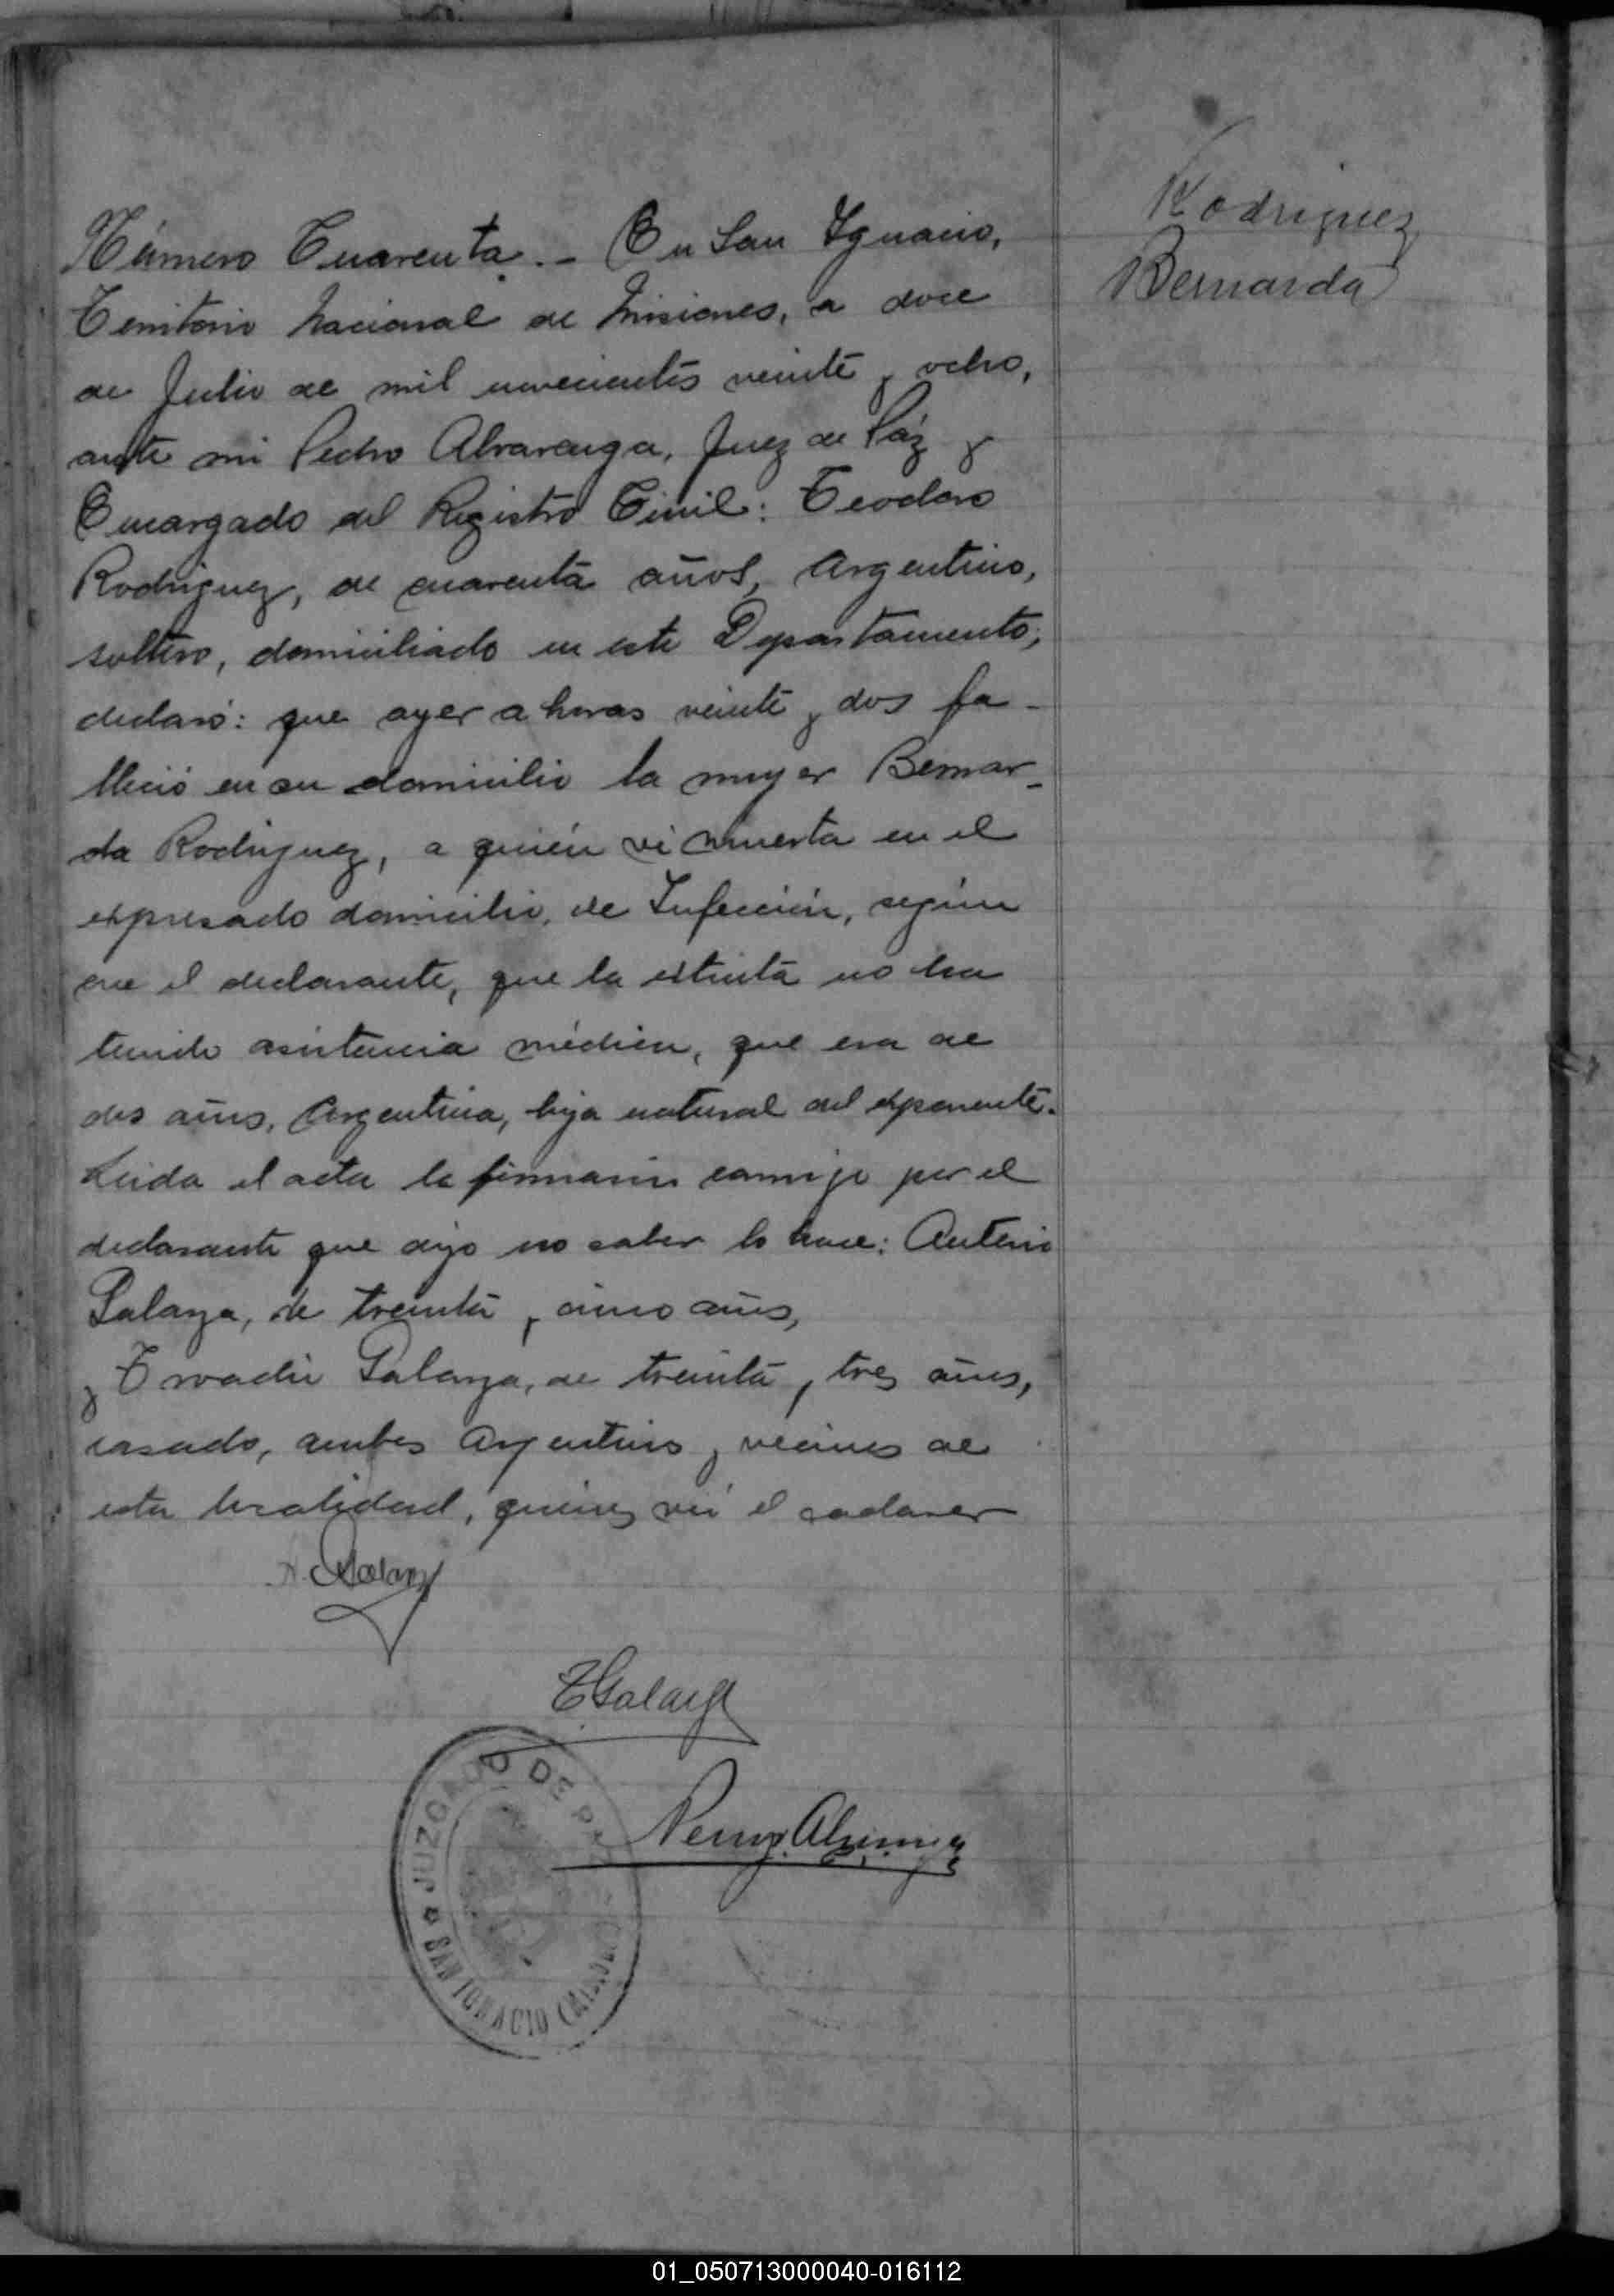 Rodriguez
Bernarda
Número Cuarenta.- En San Ignacio,
Territorio Nacional de Misiones, a doce
de Julio de mil novecientos veinte y ocho,
ante mi Pedro Alvarenga, Juez de Páz y
Encargado del Registro Civil: Teodoro
Rodriguez, de cuarenta años, Argentino,
soltero, domiciliado en este Departamento;
declaró: que ayer a horas veinte y dos fa-
lleció en su domicilio la mujer Bernar-
da Rodriguez, a quién ví muerta en el
expresado domicilio, de Infección, según
cree el declarante, que la extinta no ha
tenido asistencia médica, que era de
dos años, Argentina, hija natural del exponente.
Leida el acta la firmaron conmigo por el
declarante que dijo no saber lo hace: Antenio
Galarza, de treinta y cinco años,
y Galarza, de treinta y tres años,
casado, ambos Argentinos y vecinos de
esta localidad, quienes el cadaver
JUZGADO DE PAZ
SAN IGNACIO (MISIONES)
01_050713000040-016112